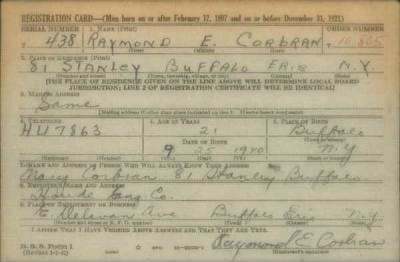 REGISTRATION CARD—(Men born on or after February 17, 1897 and on or before December 31, 1921)
SERIAL NUMBER 1. NAME (Print) ORDER NUMBER
438 RAYMOND E. CORBRAN 10,805
(First) (Middle) (Last)
2. PLACE OF RESIDENCE (Print)
81 STANLEY BUFFALO ERIE N.Y.
(Number and street) (Town, township, village, or city) (County) (State)
[THE PLACE OF RESIDENCE GIVEN ON THE LINE ABOVE WILL DETERMINE LOCAL BOARD
JURISDICTION; LINE 2 OF REGISTRATION CERTIFICATE WILL BE IDENTICAL]
3. MAILING ADDRESS
Same
[Mailing address if other than place indicated on line 2. If same insert word same]
4. TELEPHONE 5. AGE IN YEARS 6. PLACE OF BIRTH
HU 7863 21 Buffalo
DATE OF BIRTH (Town or county)
9 25 1920 N.Y
(Exchange) (Number) (Mo.) (Day) (Yr.) (State or country)
7. NAME AND ADDRESS OF PERSON WHO WILL ALWAYS KNOW YOUR ADDRESS
Corbran 81 Stanley Buffalo
8. EMPLOYER'S NAME AND ADDRESS
Co.
9. PLACE OF EMPLOYMENT OR BUSINESS
E. Delavan Ave Buffalo Erie N.Y
(Number and street or R. F. D. number) (Town) (County) (State)
I AFFIRM THAT I HAVE VERIFIED ABOVE ANSWERS AND THAT THEY ARE TRUE.
D. S. S. Form 1
(Revised 1-1-42) Raymond E Corbran
(Registrant's signature)